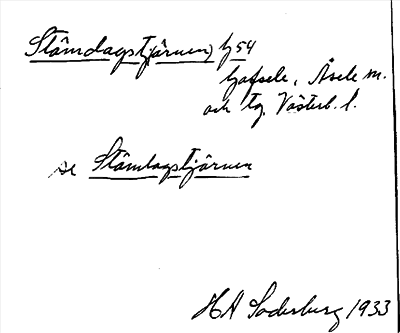 Stämdagstjärnen, 54
Gafsele, Åsele m.
och tg. Västerb. l.
se Stämtagstjärnen
H A Soderberg 1933